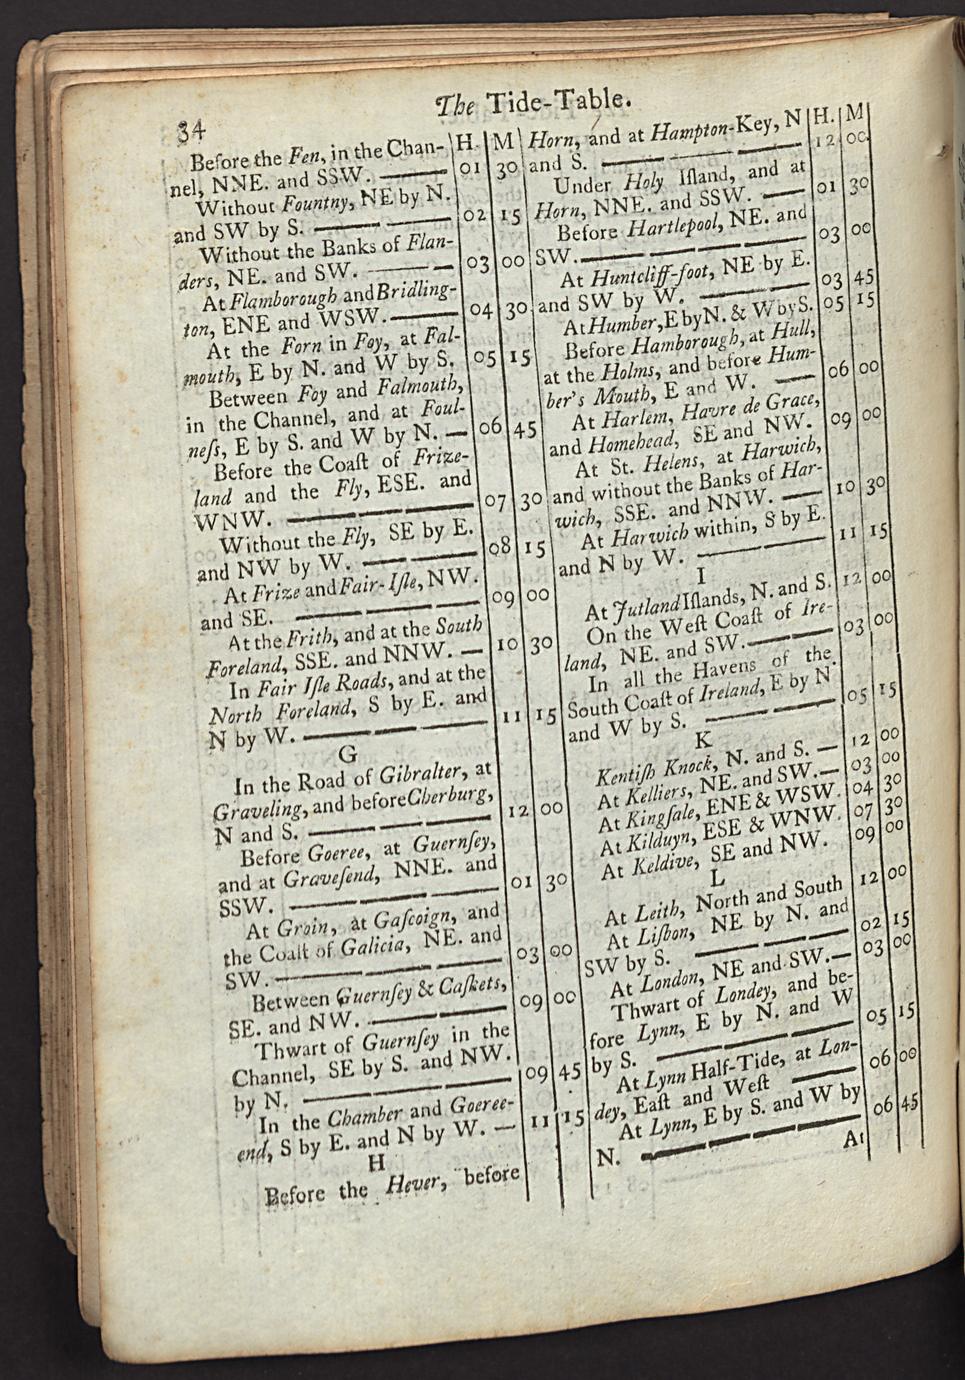 34
The Tide-Table.
H. M
Before the Fen, in the Chan-
nel, NNE. and SSW. —— 01 30
Without Fountny, NE by N.
and SW by S. —— —— 02 15
Without the Banks of Flan-
ders, NE. and SW. —— — 03 00
At Flamborough and Bridling-
ton, ENE and WSW. —— 04 30
At the Forn in Foy, at Fal-
mouth, E by N. and W by S. 05 15
Between Foy and Falmouth,
in the Channel, and at Foul-
neſs, E by S. and W by N. — 06 45
Before the Coaſt of Frize-
land and the Fly, ESE. and
WNW. —— —— —— 07 30
Without the Fly, SE by E.
and NW by W. —— —— 08 15
At Frize and Fair-Iſle, NW.
and SE. —— —— —— 09 00
At the Frith, and at the South
Foreland, SSE. and NNW. — 10 30
In Fair Iſle Roads, and at the
North Foreland, S by E. and
N by W. —— —— —— 11 15
G
In the Road of Gibralter, at
Graveling, and before Cherburg,
N and S. —— —— —— 12 00
Before Goeree, at Guernſey,
and at Graveſend, NNE. and
SSW. —— —— —— 01 30
At Groin, at Gaſcoign, and
the Coaſt of Galicia, NE. and
SW. —— —— —— 03 00
Between Guernſey & Caſkets,
SE. and NW. —— —— 09 00
Thwart of Guernſey in the
Channel, SE by S. and NW.
by N. —— —— —— 09 45
In the Chamber and Goeree-
end, S by E. and N by W. — 11 15
H
Before the Hever, before
H. M
Horn, and at Hampton-Key, N
and S. —— —— —— 12 00
Under Holy Iſland, and at
Horn, NNE. and SSW. —— 01 30
Before Hartlepool, NE. and
SW. —— —— —— 03 00
At Huntcliff-foot, NE by E.
and SW by W. —— —— 03 45
At Humber, E by N. & W by S. 05 15
Before Hamborough, at Hull,
at the Holms, and before Hum-
ber's Mouth, E and W. —— 06 00
At Harlem, Havre de Grace,
and Homehead, SE and NW. 09 00
At St. Helens, at Harwich,
and without the Banks of Har-
wich, SSE. and NNW. —— 10 30
At Harwich within, S by E.
and N by W. —— —— 11 15
I
At Jutland Iſlands, N. and S. 12 00
On the Weſt Coaſt of Ire-
land, NE. and SW. —— 03 00
In all the Havens of the
South Coaſt of Ireland, E by N
and W by S. —— —— 05 15
K
Kentiſh Knock, N. and S. — 12 00
At Kelliers, NE. and SW. — 03 00
At Kingſale, ENE & WSW. 04 30
At Kilduyn, ESE & WNW. 07 30
At Keldive, SE and NW. 09 00
L
At Leith, North and South 12 00
At Liſbon, NE by N. and
SW by S. —— —— 02 15
At London, NE and SW. — 03 00
Thwart of Londey, and be-
fore Lynn, E by N. and W
by S. —— —— —— 05 15
At Lynn Half-Tide, at Lon-
dey, Eaſt and Weſt —— 06 00
At Lynn, E by S. and W by
N. —— —— —— 06 45
At